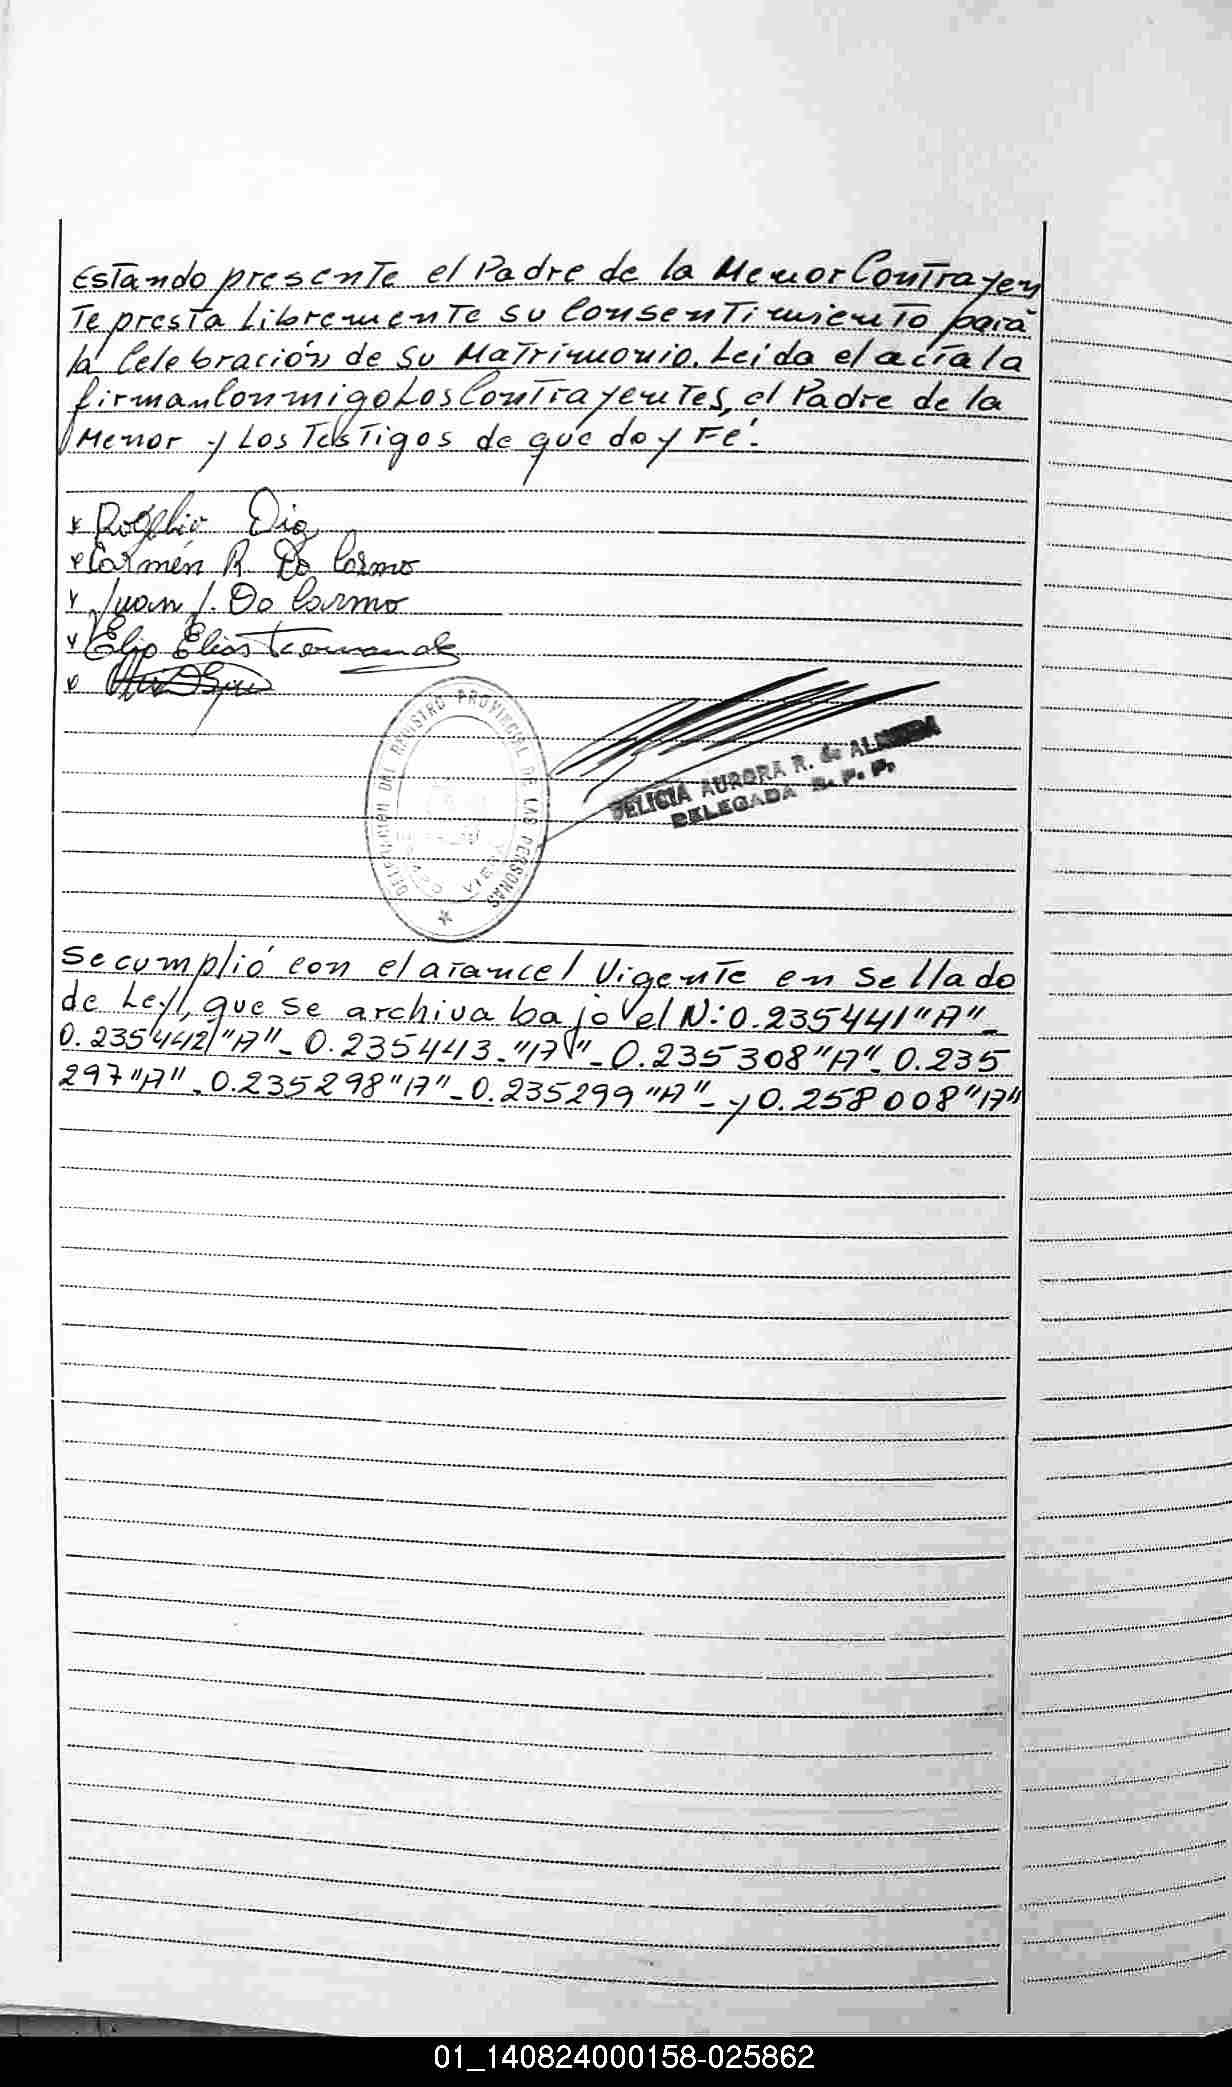 Estando presente el Padre de la Menor Contrayen
te presta Libremente su Consentimiento para
la Celebración de su Matrimonio. Leida el acta la
firman Conmigo Los Contrayentes, el Padre de la
Menor y Los Testigos de que doy Fé.
x Rogelio Dia
x Carmén R. Do Carmo
x Juan J. Do Carmo
x Elio Elias Fernandez
x
DEL REGISTRO PROVINCIAL DE LAS PERSONAS
OBISPO... VIERA
DELICIA AURORA R. de ALMEIDA
DELEGADA R. P. P.
Se cumplió con el arancel Vigente en Sellado
de Ley, que se archiva bajo el N: 0.235441 "A" -
0.235442 "A" - 0.235443 - "A" - 0.235308 "A" - 0.235
297 "A" - 0.235298 "A" - 0.235299 "A" - y 0.258008 "A"
01_140824000158-025862